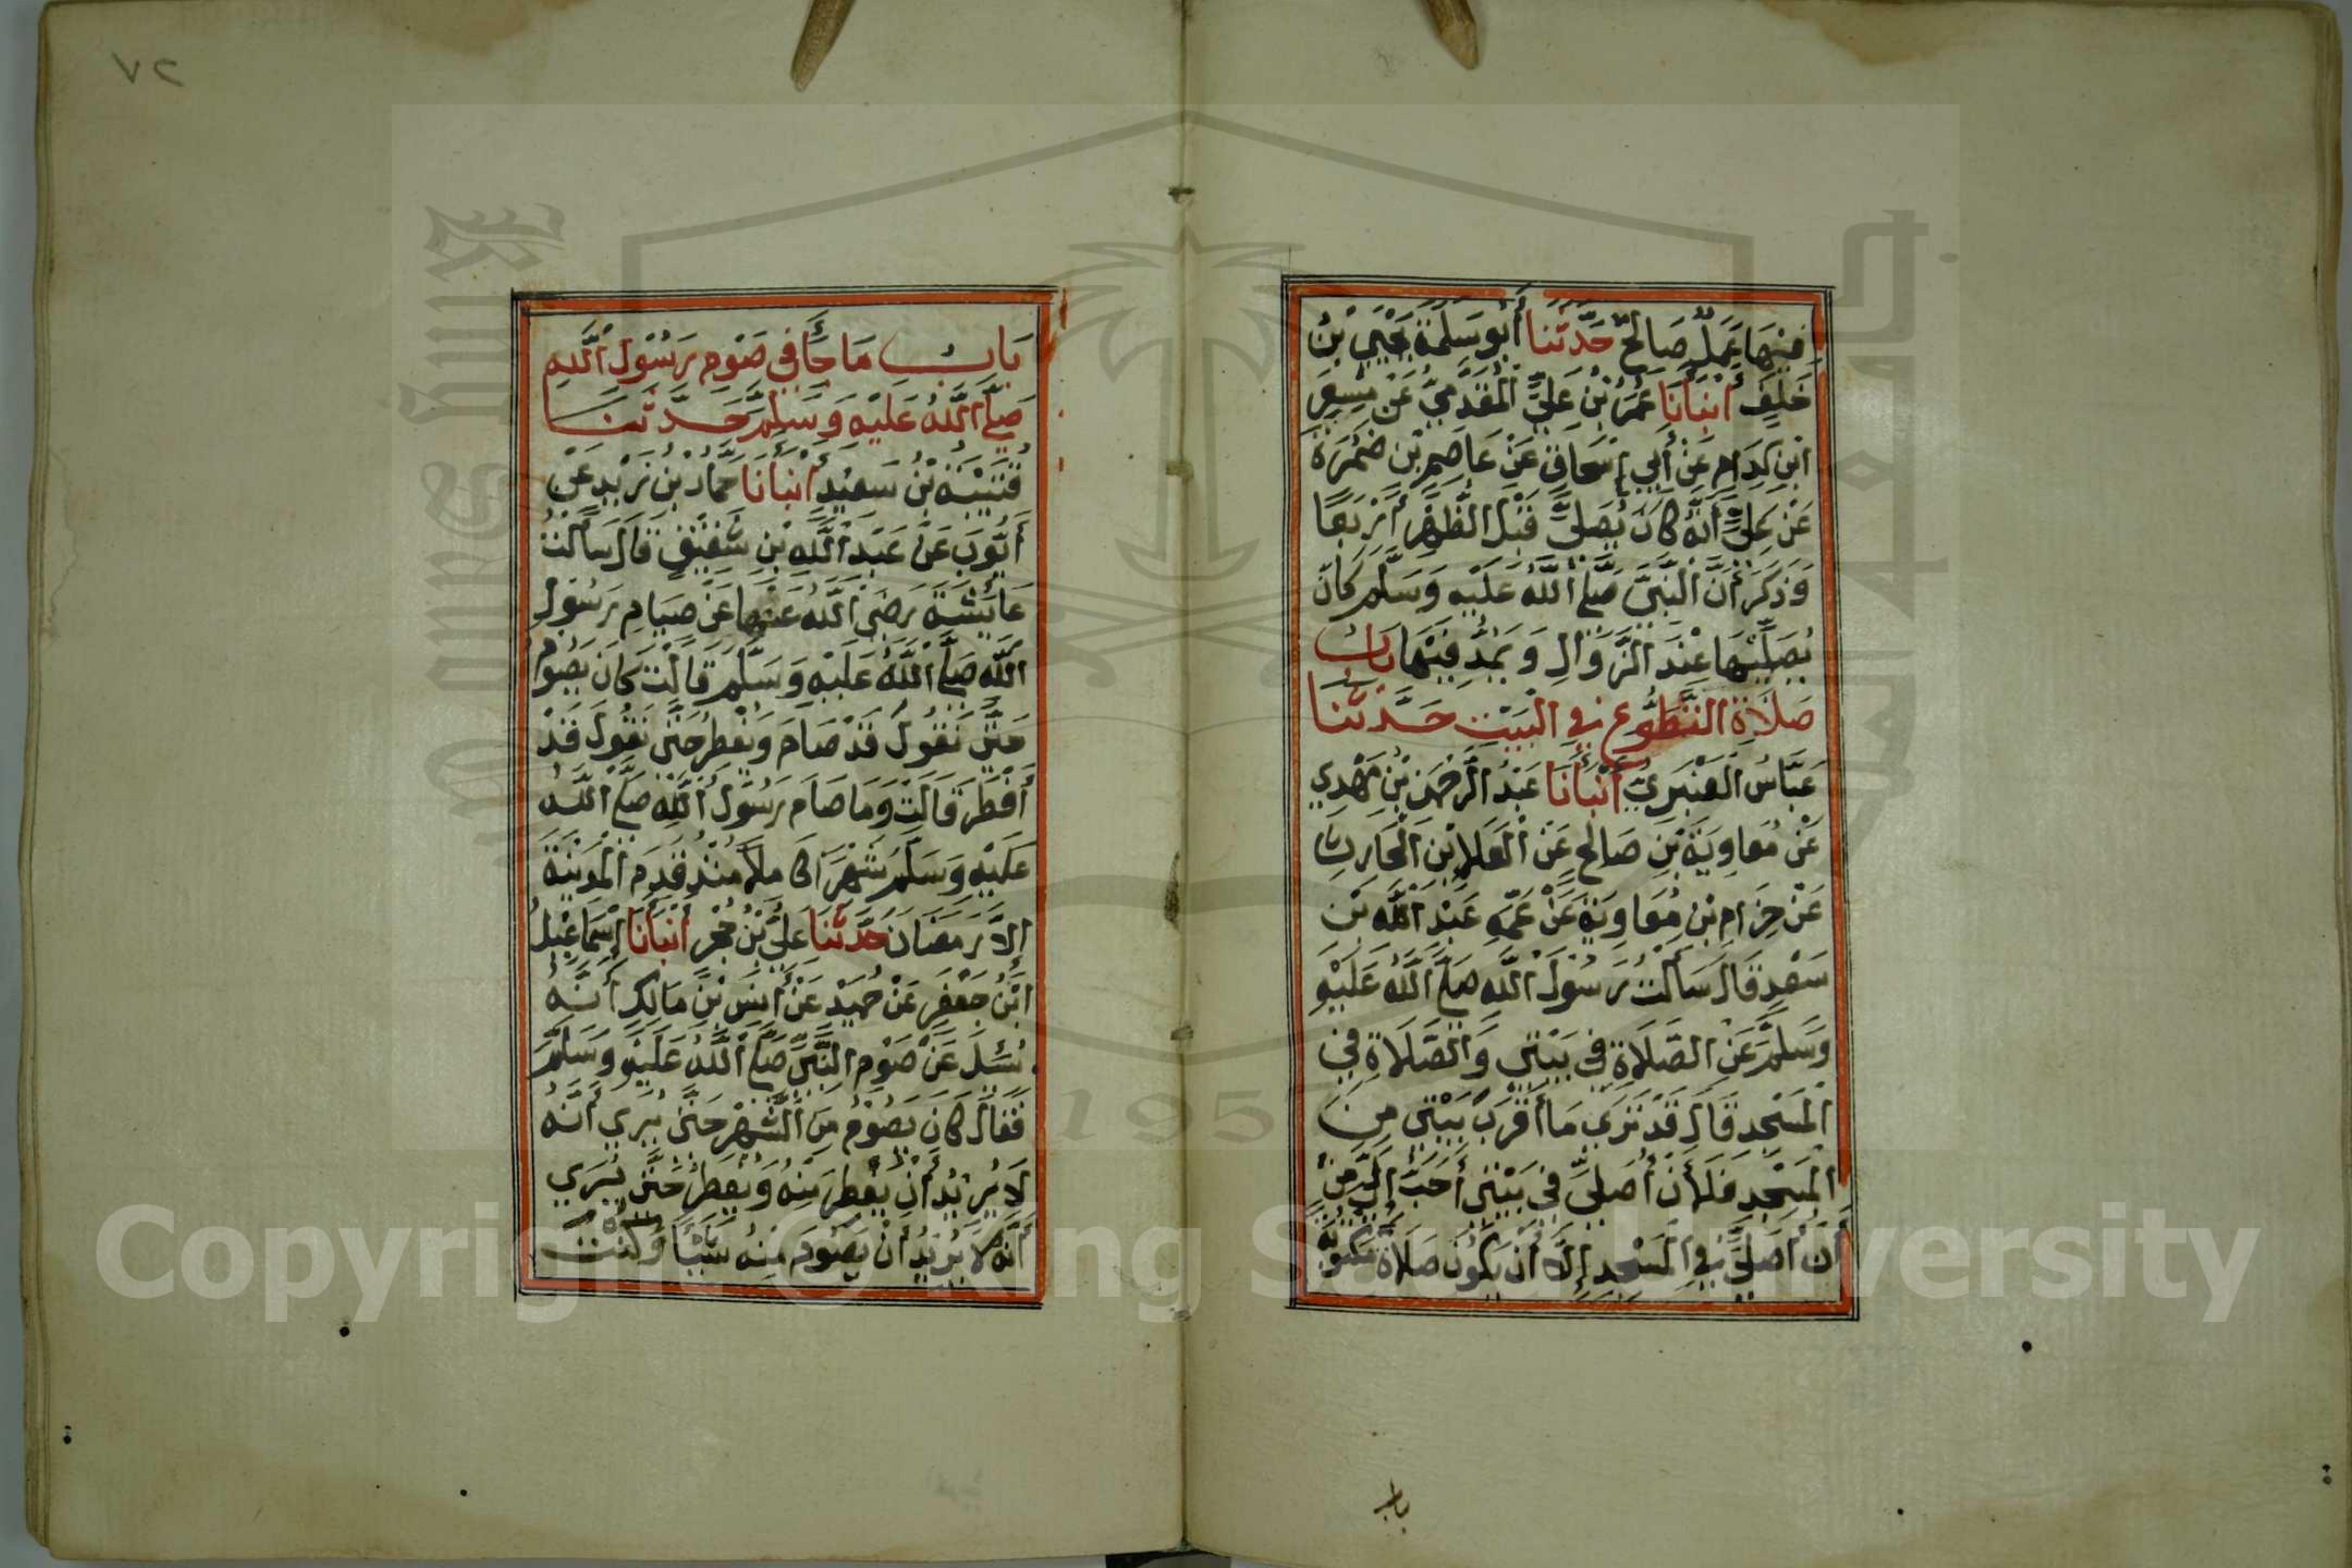 فِيْهَا عَمَلٌ صَالِحٌ حَدَّثَنَا أَبُو سَلَمَةَ يَحْيَي بْنُ
خَلَفٍ أَنْبَأَنَا عُمَرُ بْنُ عَلِيٍّ الْمُقَدَّمِيُّ عَنْ مِسْعَرِ
ابْنِ كِدَامٍ عَنْ أَبِي إِسْحَاقَ عَنْ عَاصِمِ بْنِ ضَمْرَةَ
عَنْ عَلِيٍّ أَنَّهُ كَانَ يُصَلِّيَ قَبْلَ الظُّهْرِ أَرْبَعًا
وَذَكَرَ أَنَّ النَّبِيَّ صَلَّي اللَّهُ عَلَيْهِ وَسَلَّمَ كَانَ
يُصَلِّيْهَا عِنْدَ الزَّوَالِ وَيَمُدُّ فِيْهَا بَابُ
صَلَاةِ التَّطَوُّعِ فِي الْبَيْتِ حَدَّثَنَا
عَبَّاسُ الْعَنْبَرِيُّ أَنْبَأَنَا عَبْدُ الرَّحْمَنِ بْنُ مَهْدِي
عَنْ مُعَاوِيَةَ بْنِ صَالِحٍ عَنْ الْعَلَا بْنِ الْحَارِثِ
عَنْ حِزَامِ بْنِ مُعَاوِيَةَ عَنْ عَمِّهِ عَبْدِ اللَّهِ بْنِ
سَعْدٍ قَالَ سَأَلْتُ رَسُوْلَ اللَّهِ صَلَّي اللَّهُ عَلَيْهِ
وَسَلَّمَ عَنِ الصَّلَاةِ فِي بَيْتِي وَالصَّلَاةِ فِي
الْمَسْجِدِ قَالَ قَدْ تَرَي مَا أَقْرَبَ بَيْتِي مِنَ
الْمَسْجِدِ فَلَأَنْ أُصَلِّيَ فِي بَيْتِي أَحَبُّ إِلَيَّ مِنْ
أَنْ أُصَلِّيَ فِي الْمَسْجِدِ إِلَّا أَنْ يَكُوْنَ صَلَاةً مَكْتُوْبَةً
باب
٧٢
بَابُ مَا جَأَ فِي صَوْمِ رَسُوْلِ اللَّهِ
صَلَّي اللَّهُ عَلَيْهِ وَسَلَّمَ حَدَّثَنَا
قُتَيْبَةُ بْنُ سَعِيْدٍ أَنْبَأَنَا حَمَّادُ بْنُ زَيْدٍ عَنْ
أَيُّوْبَ عَنْ عَبْدِ اللَّهِ بْنِ شَقِيْقٍ قَالَ سَأَلْتُ
عَايِشَةَ رَضِيَ اللَّهُ عَنْهَا عَنْ صِيَامِ رَسُوْلِ
اللَّهِ صَلَّي اللَّهُ عَلَيْهِ وَسَلَّمَ قَالَتْ كَانَ يَصُوْمُ
حَتَّي نَقُوْلَ قَدْ صَامَ وَيُفْطِرُ حَتَّي نَقُوْلَ قَدْ
أَفْطَرَ قَالَتْ وَمَا صَامَ رَسُوْلُ اللَّهِ صَلَّي اللَّهُ
عَلَيْهِ وَسَلَّمَ شَهْرًا كَامِلًا مُنْذُ قَدِمَ الْمَدِيْنَةَ
إِلَّا رَمَضَانَ حَدَّثَنَا عَلِيُّ بْنُ حُجْرٍ أَنْبَأَنَا إِسْمَاعِيْلُ
ابْنُ جَعْفَرٍ عَنْ حُمَيْدٍ عَنْ أَنَسِ بْنِ مَالِكٍ أَنَّهُ
سُئِلَ عَنْ صَوْمِ النَّبِيِّ صَلَّي اللَّهُ عَلَيْهِ وَسَلَّمَ
فَقَالَ كَانَ يَصُوْمُ مِنَ الشَّهْرِ حَتَّي يُرَي أَنَّهُ
لَا يُرِيْدُ أَنْ يُفْطِرَ مِنْهُ وَيُفْطِرُ حَتَّي يُرَي
أَنَّهُ لَا يُرِيْدُ أَنْ يَصُوْمَ مِنْهُ شَيْئًا وَكُنْتَ
Copyright © King Saud University
1957